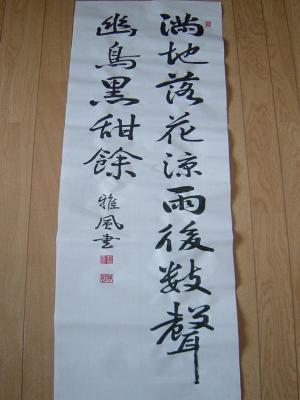 満地落花涼雨後數聲
幽鳥黒甜餘
雅風書